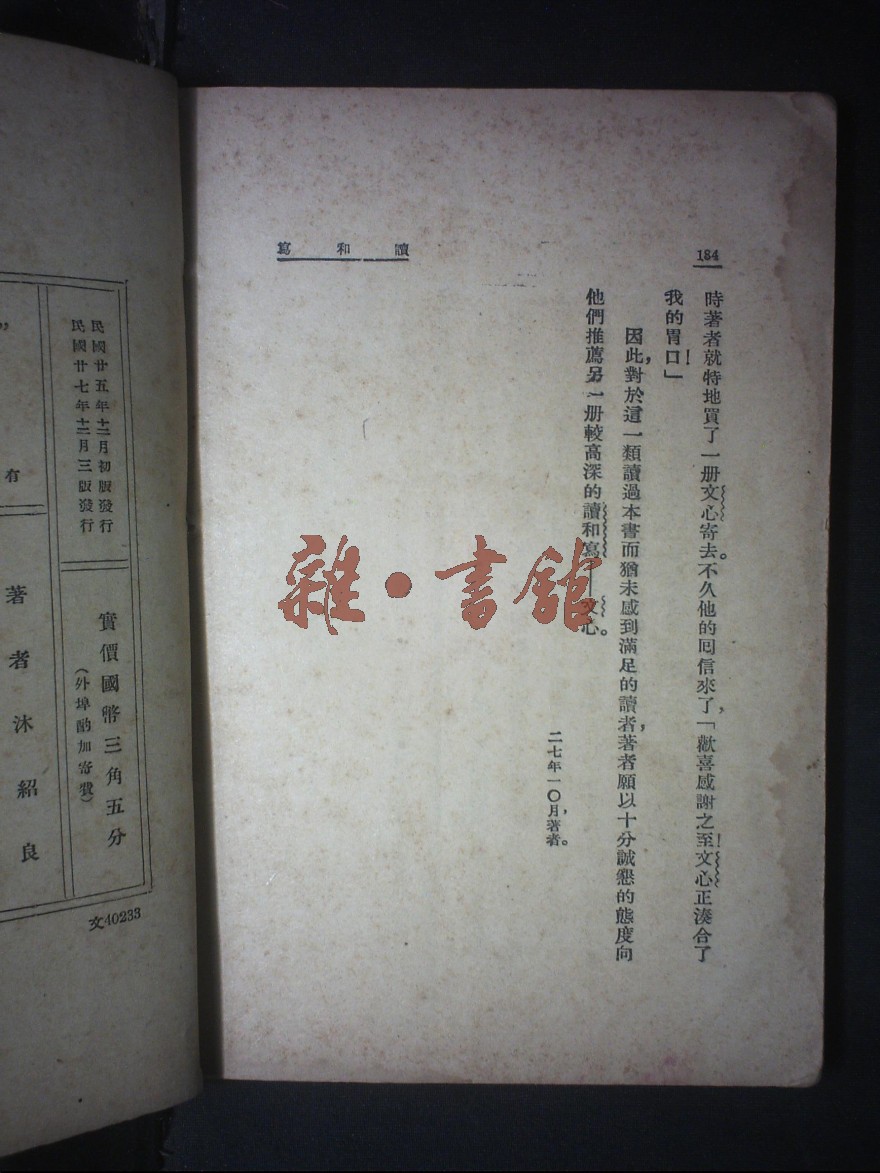 184
讀和寫
時著者就特地買了一册文心寄去。不久他的囘信來了，「歡喜感謝之至！文心正湊合了
我的胃口！」
因此，對於這一類讀過本書而猶未感到滿足的讀者，著者願以十分誠懇的態度向
他們推薦另一册較高深的讀和寫——文心。
二七年一〇月，著者。
雜·書館
民國廿五年十二月初版發行
民國廿七年十二月三版發行
實價國幣三角五分
（外埠酌加寄費）
有
著者沐紹良
文40233